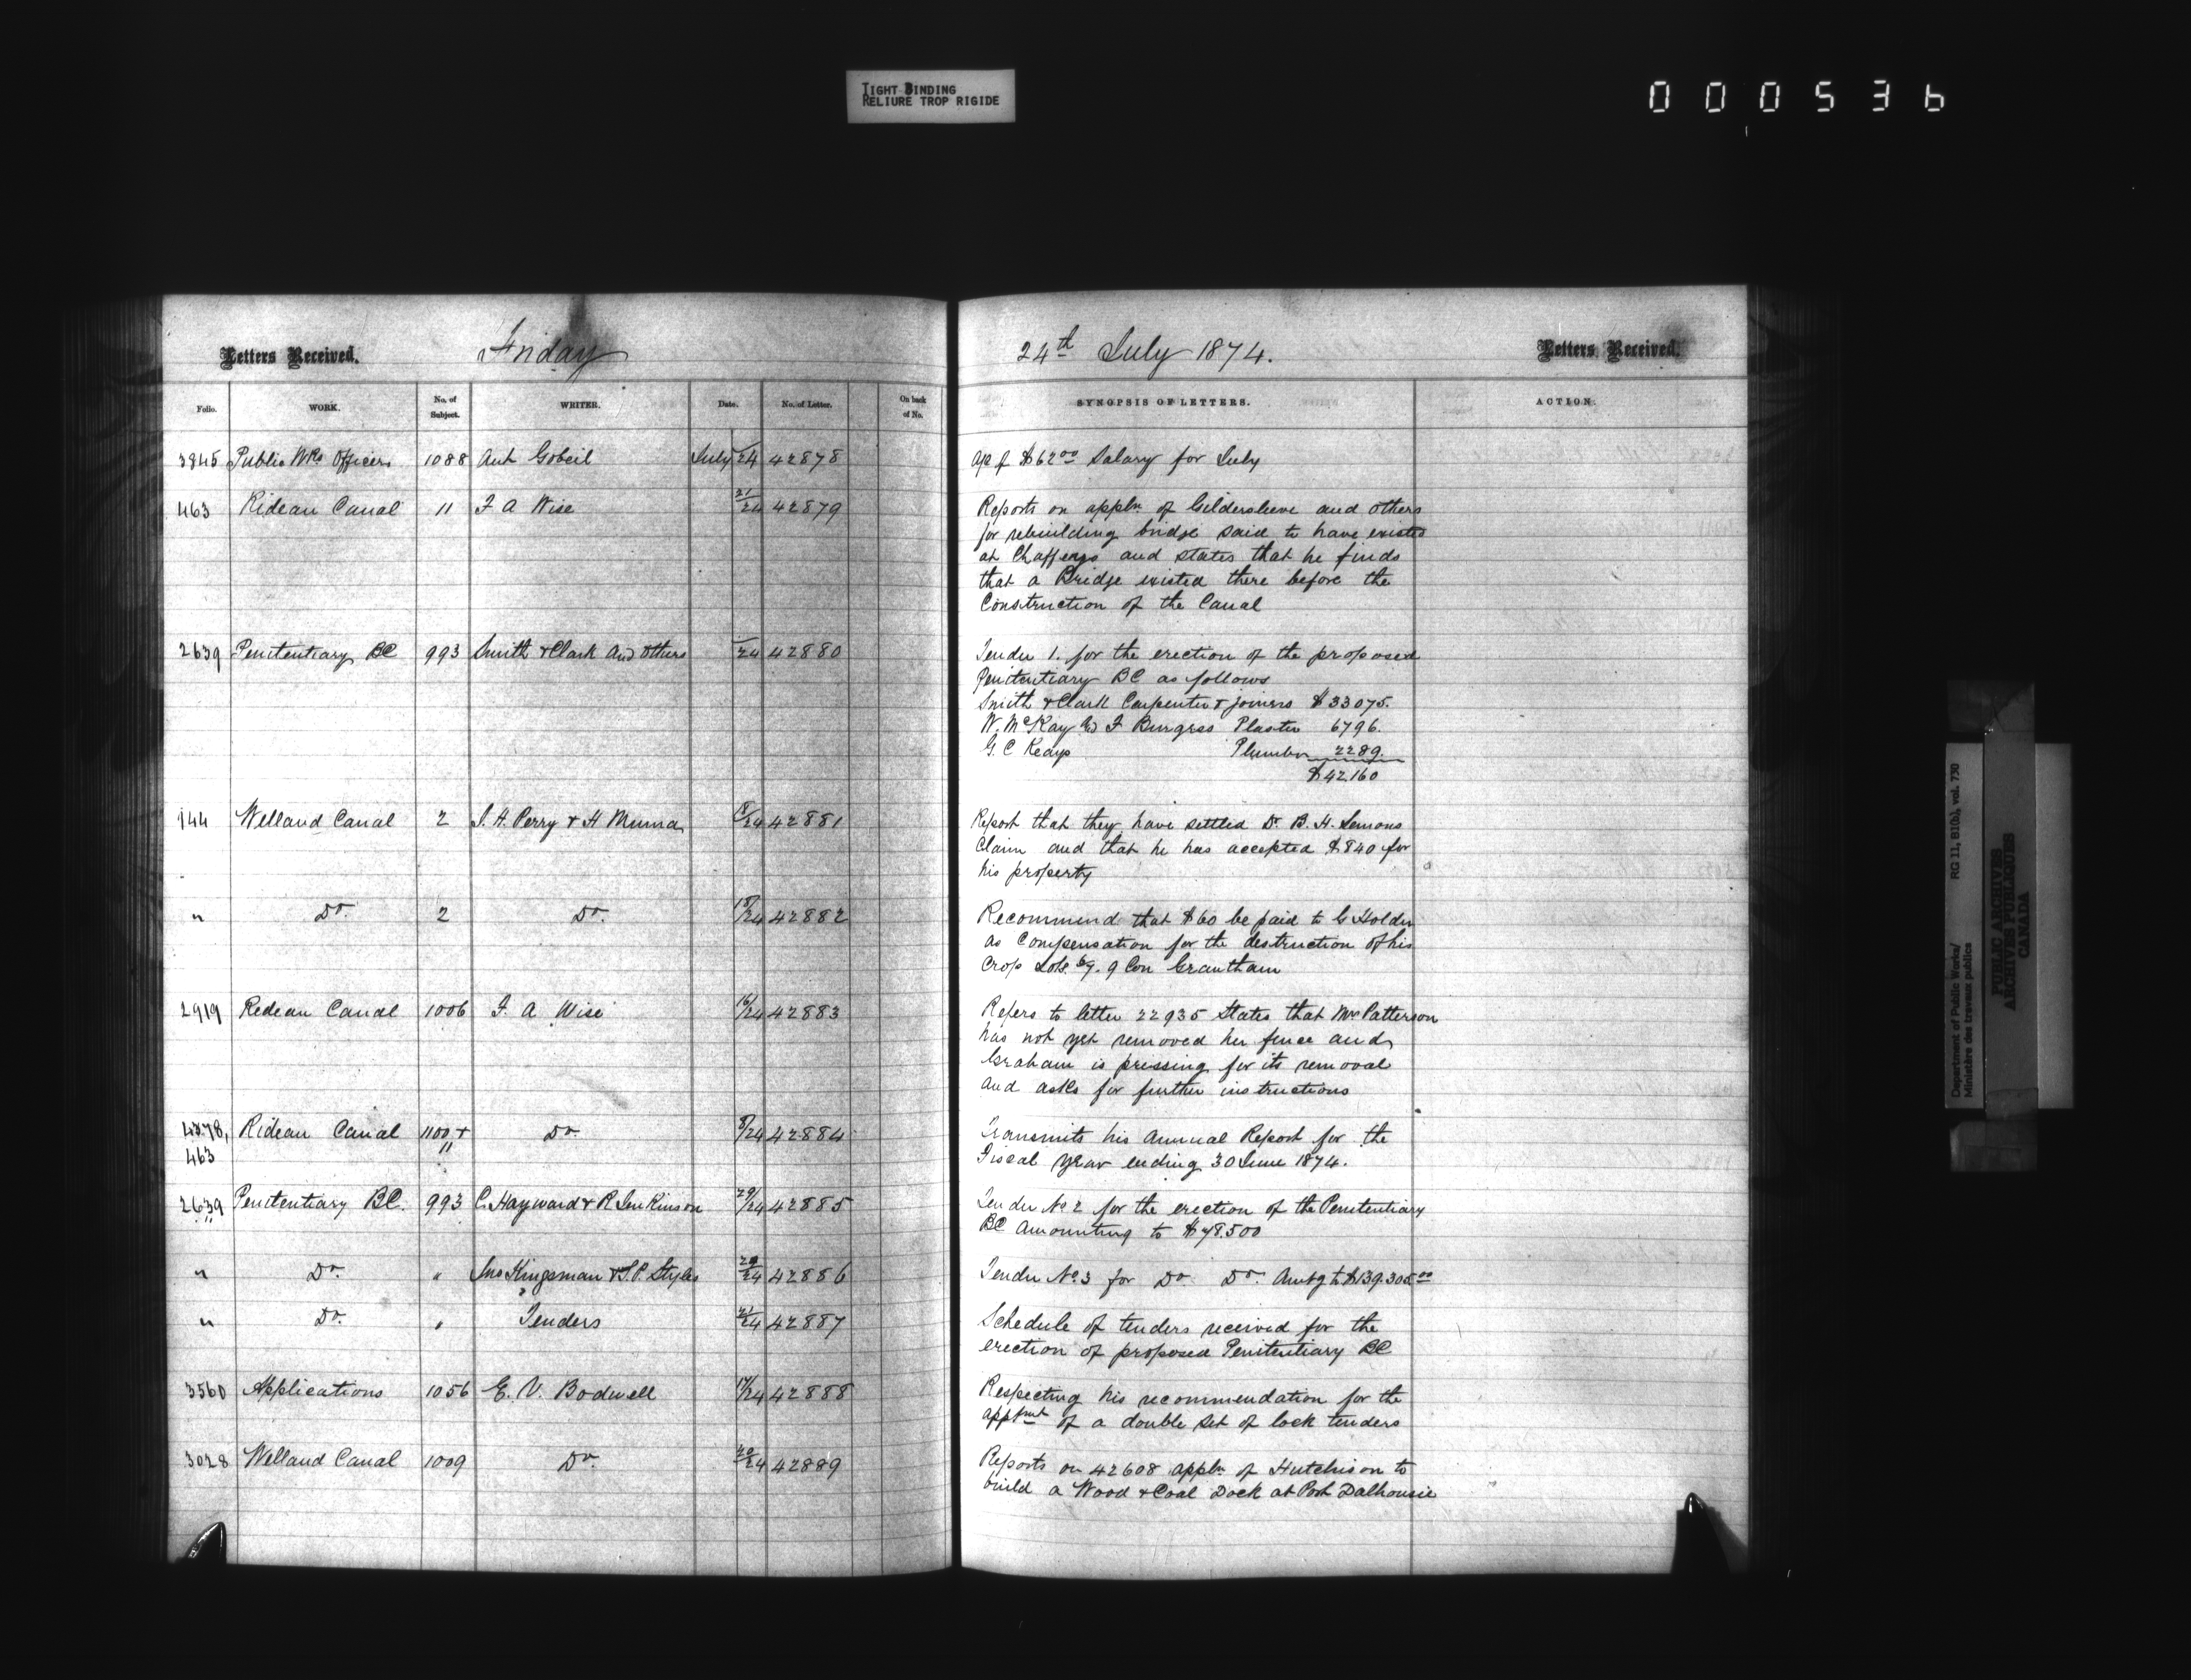 TIGHT BINDING
RELIURE TROP RIGIDE
000536
Letters Received.
Friday
24th July 1874.
Letters Received.
Folio.
WORK.
No. of Subject.
WRITER.
Date.
No. of Letter.
On back of No.
SYNOPSIS OF LETTERS.
ACTION.
3845 Public Wks Officers 1088 Ant Gobeil July 24 42878
a/c of $62.00 Salary for July
463 Rideau Canal 11 F A Wise 21/24 42879
Reports on appln of Gildersleeve and others
for rebuilding bridge said to have existed
at Chaffeys and states that he finds
that a Bridge existed there before the
Construction of the Canal
2639 Penitentiary BC 993 Smith & Clark and others 24 42880
Tender 1. for the erection of the proposed
Penitentiary BC as follows
Smith & Clark Carpenter & joiners $33075.
W. McKay & F Burgess Plaster 6796.
G. C Keays Plumber 2289.
$42,160
144 Welland Canal 2 J. H. Perry & H Muma 18/24 42881
Report that they have settled Dr. B. H. Lemons
Claim and that he has accepted $840 for
his property
" Do. 2 Do. 18/24 42882
Recommend that $60 be paid to G Holder
as Compensation for the destruction of his
Crop Lots 9 Con Grantham
2919 Redeau Canal 1006 F. A Wise 16/24 42883
Refers to letter 22935 States that Mrs Patterson
has not yet removed her fence and
Graham is pressing for its removal
and asks for further instructions
4378, Rideau Canal 1100 & Do. 8/24 42884
463 11
Transmits his Annual Report for the
Fiscal Year ending 30 June 1874.
2639 Penitentiary BC. 993 C. Hayward & R Jenkinson 29/24 42885
Tender No 2 for the erection of the Penitentiary
BC Amounting to $78.500
" Do. " Jno Kingsman & T. P. Styles 24 42886
Tender No. 3 for Do. Do. Amtg to $139.305.00
" Do. " Tenders 21/24 42887
Schedule of tenders received for the
erection of proposed Penitentiary BC
3560 Applications 1056 E. V. Bodwell 17/24 42888
Respecting his recommendation for the
apptmt of a double set of lock tenders
3028 Welland Canal 1009 Do. 20/24 42889
Reports on 42608 appln of Hutchison to
build a Wood & Coal Dock at Port Dalhousie
Department of Public Works/ RG 11, B1(b), vol. 730
Ministère des travaux publics
PUBLIC ARCHIVES
ARCHIVES PUBLIQUES
CANADA